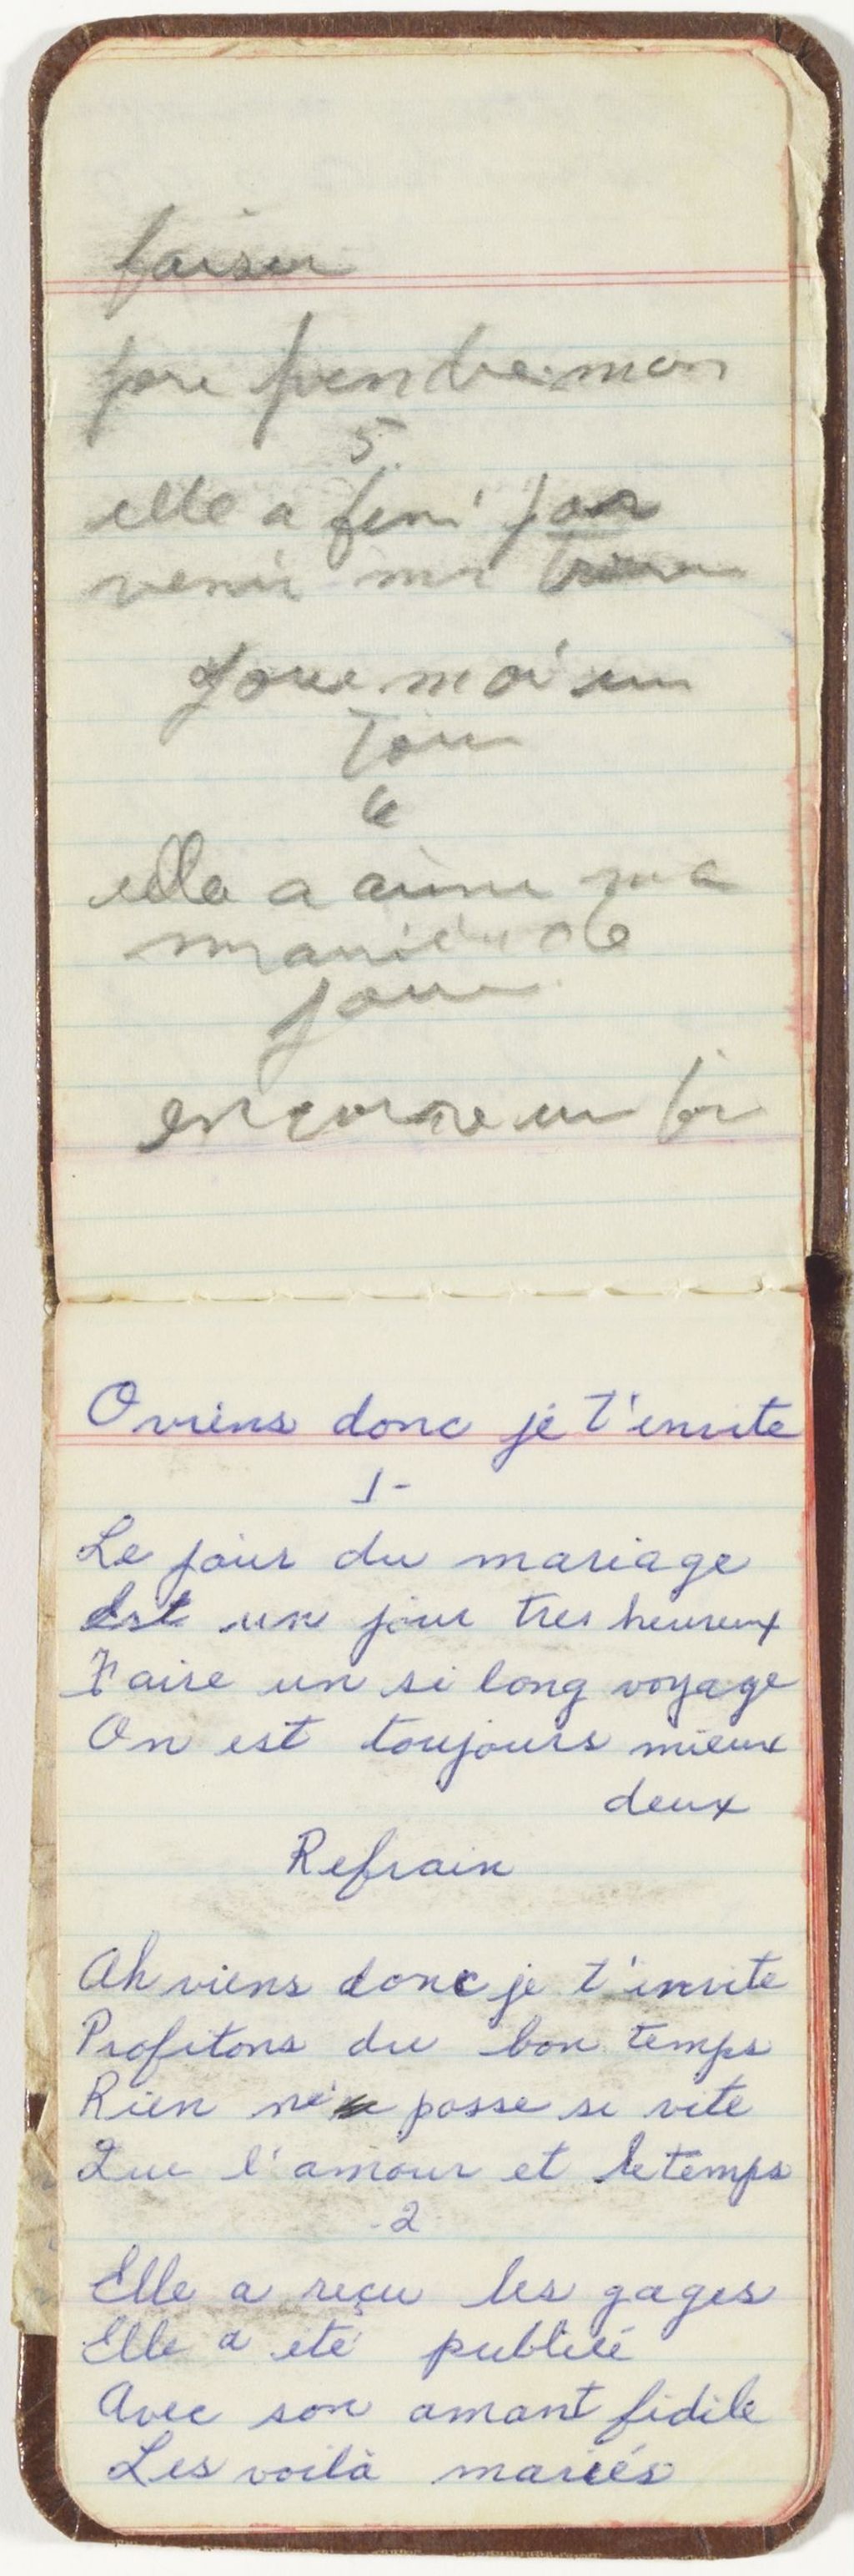 faiseu
pore prendre mon
5
elle a fini par
venir mi
Joue moi un
Tour
6
elle a aime ma
maniere de
joue
encorore un foi
O viens donc je t'invite
1-
Le jour du mariage
Est un jour tres heureux
Faire un si long voyage
On est toujours mieux
deux
Refrain
Ah viens donc je t'invite
Profitons du bon temps
Rien ne passe si vite
Que l'amour et le temps
-2
Elle a reçu les gages
Elle a eté publiée
Avec son amant fidile
Les voilà mariés